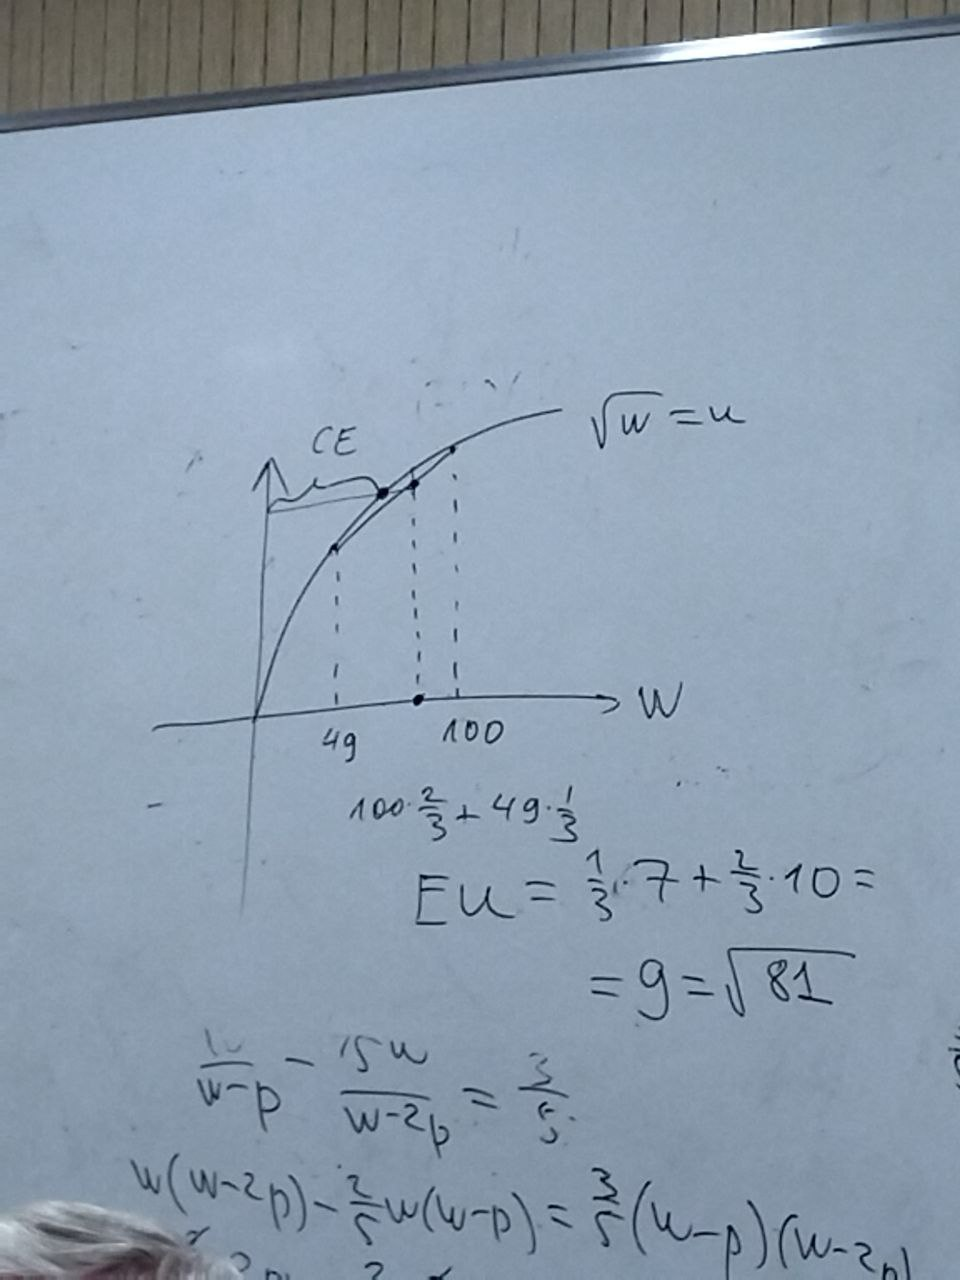 CE
√w = u
W
49
100
100·2/3 + 49·1/3
EU = 1/3·7 + 2/3·10 =
= 9 = √81
w-p - w-2p = 3/5
w(w-2p) - 2/5 w(w-p) = 3/5 (w-p)(w-2p)